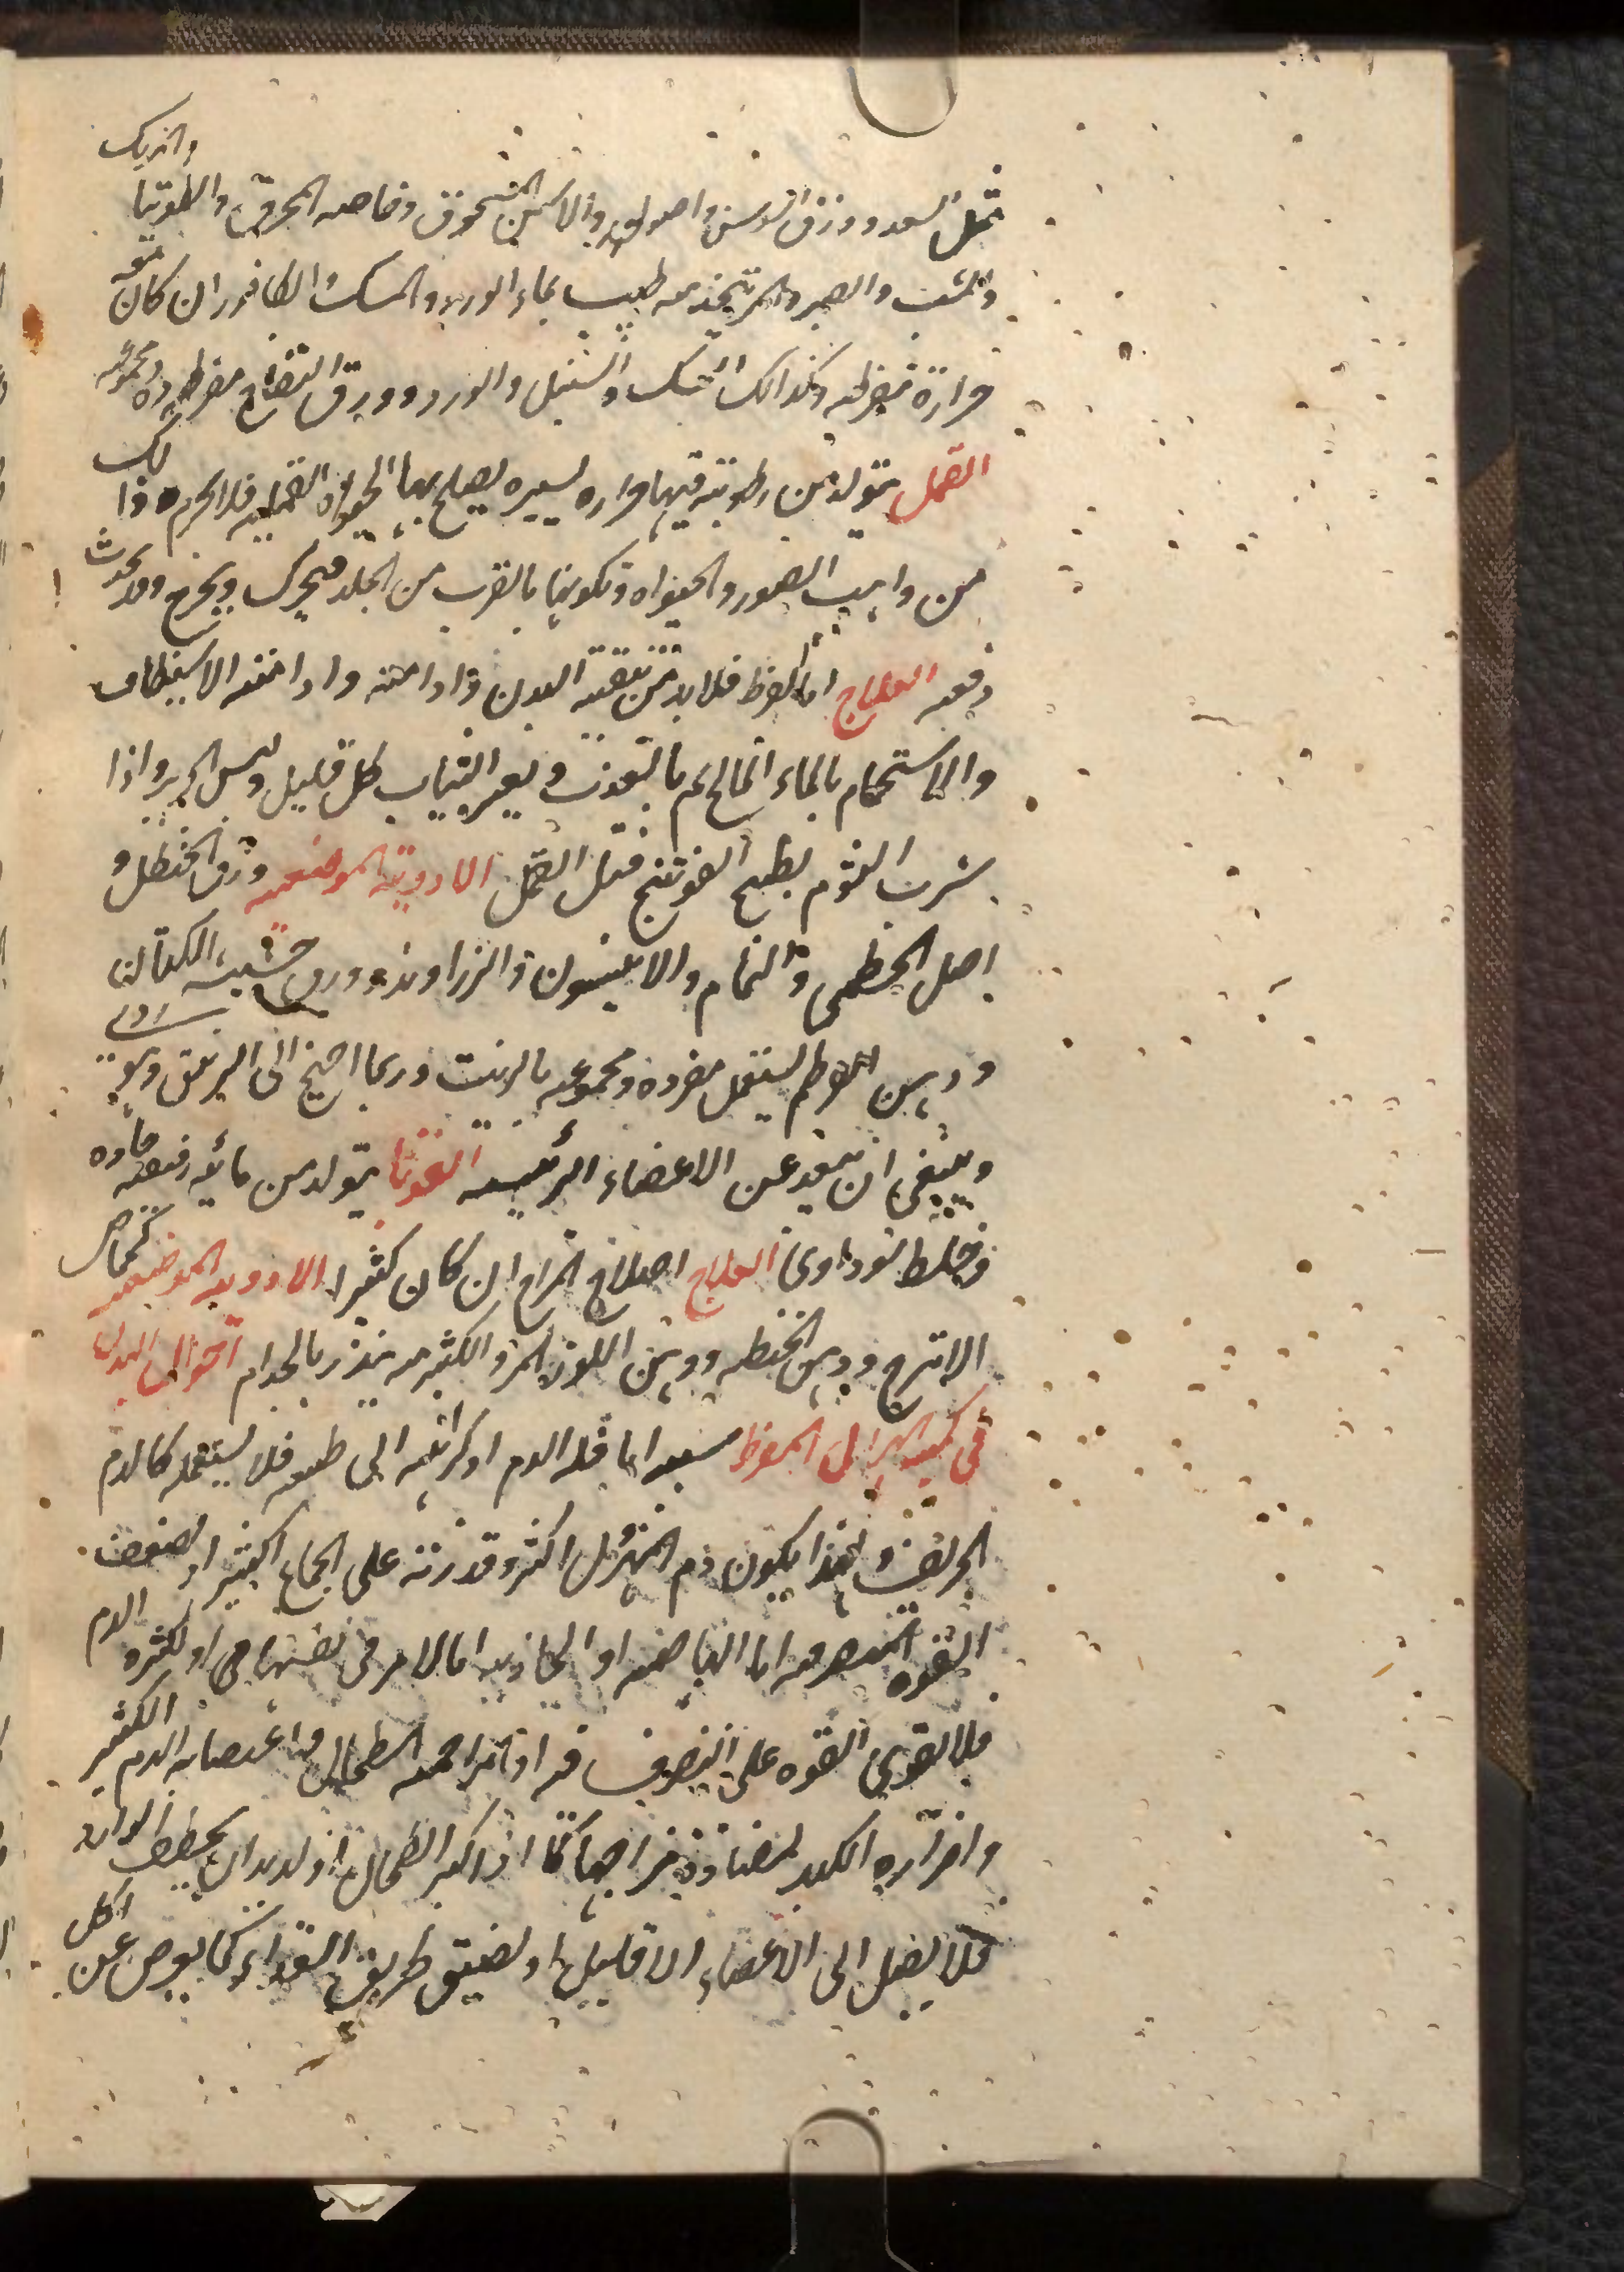 مثل السعد وورق السوسن واصوله والاس المسحوق وخاصه المحرق والتوتيا والمرتك
والشب والصبر والمر يتخذ منه طيب بماء الورد والمسك والكافور ان كان معه
حرارة مفرطه وكذلك السك والسنبل والورد وورق التفاح مفرده ومجموعه
القمل يتولد من رطوبة فيها حراره يسيره يصلح بها لحيواه القمليه فلا يحرم ذلك
من واهب الصور والحيواه وتكونها بالقرب من الجلد فيتحرك ويخرج وقد يحدث
دفعه العلاج اما المفرط فلا بد من تنقيه البدن وادامته وادامه الاستنظاف
والاستحمام بالماء المالح ثم بالعذب وتغيير الثياب كل قليل ولبس الحرير واذا
شرب الثوم بطبيخ الفوتنج قتل القمل الادوية الموضعيه ورق الحنظل و
اصل الخطمى والنمام والانيسون والزراوند وورق خشبه الكتان
ودهن القرطم يستعمل مفرده ومجموعه بالزيت وربما احتيج الى الزيبق
وينبغى ان يبعد عن الاعضاء الرئيسه القوبا يتولد من مائيه رقيقه حاده
وخلط سوداوى العلاج اصلاح المزاج ان كان كثيرا الادويه الموضعيه كحماض
الاترج ودهن الحنطه ودهن اللوز المر والكثير منه ينذر بالجذام احوال البدن
فى كميته الهزال المفرط سببه اما قله الدم او كراهته الى طبعه فلا يستعمله كالدم
الحريف ولهذا يكون دم المهزول اكثر وقدرته على الجماع اكثير او لضعف
القوه المتصرفه اما الهاضمه او الجاذبه اما لامر فى نفسها هى او لكثره الدم
فلا تقوى القوه على التصرف فيه او لمزاحمه الطحال واغتصابه الدم الكثير
واضراره الكبد لمضادة مزاجهما كما اذا كبر الطحال او لديدان يخطف الوارد
فلا يصل الى الاعضاء الا قليل او لضيق طريق الغذاء كما يعرض عن اكل